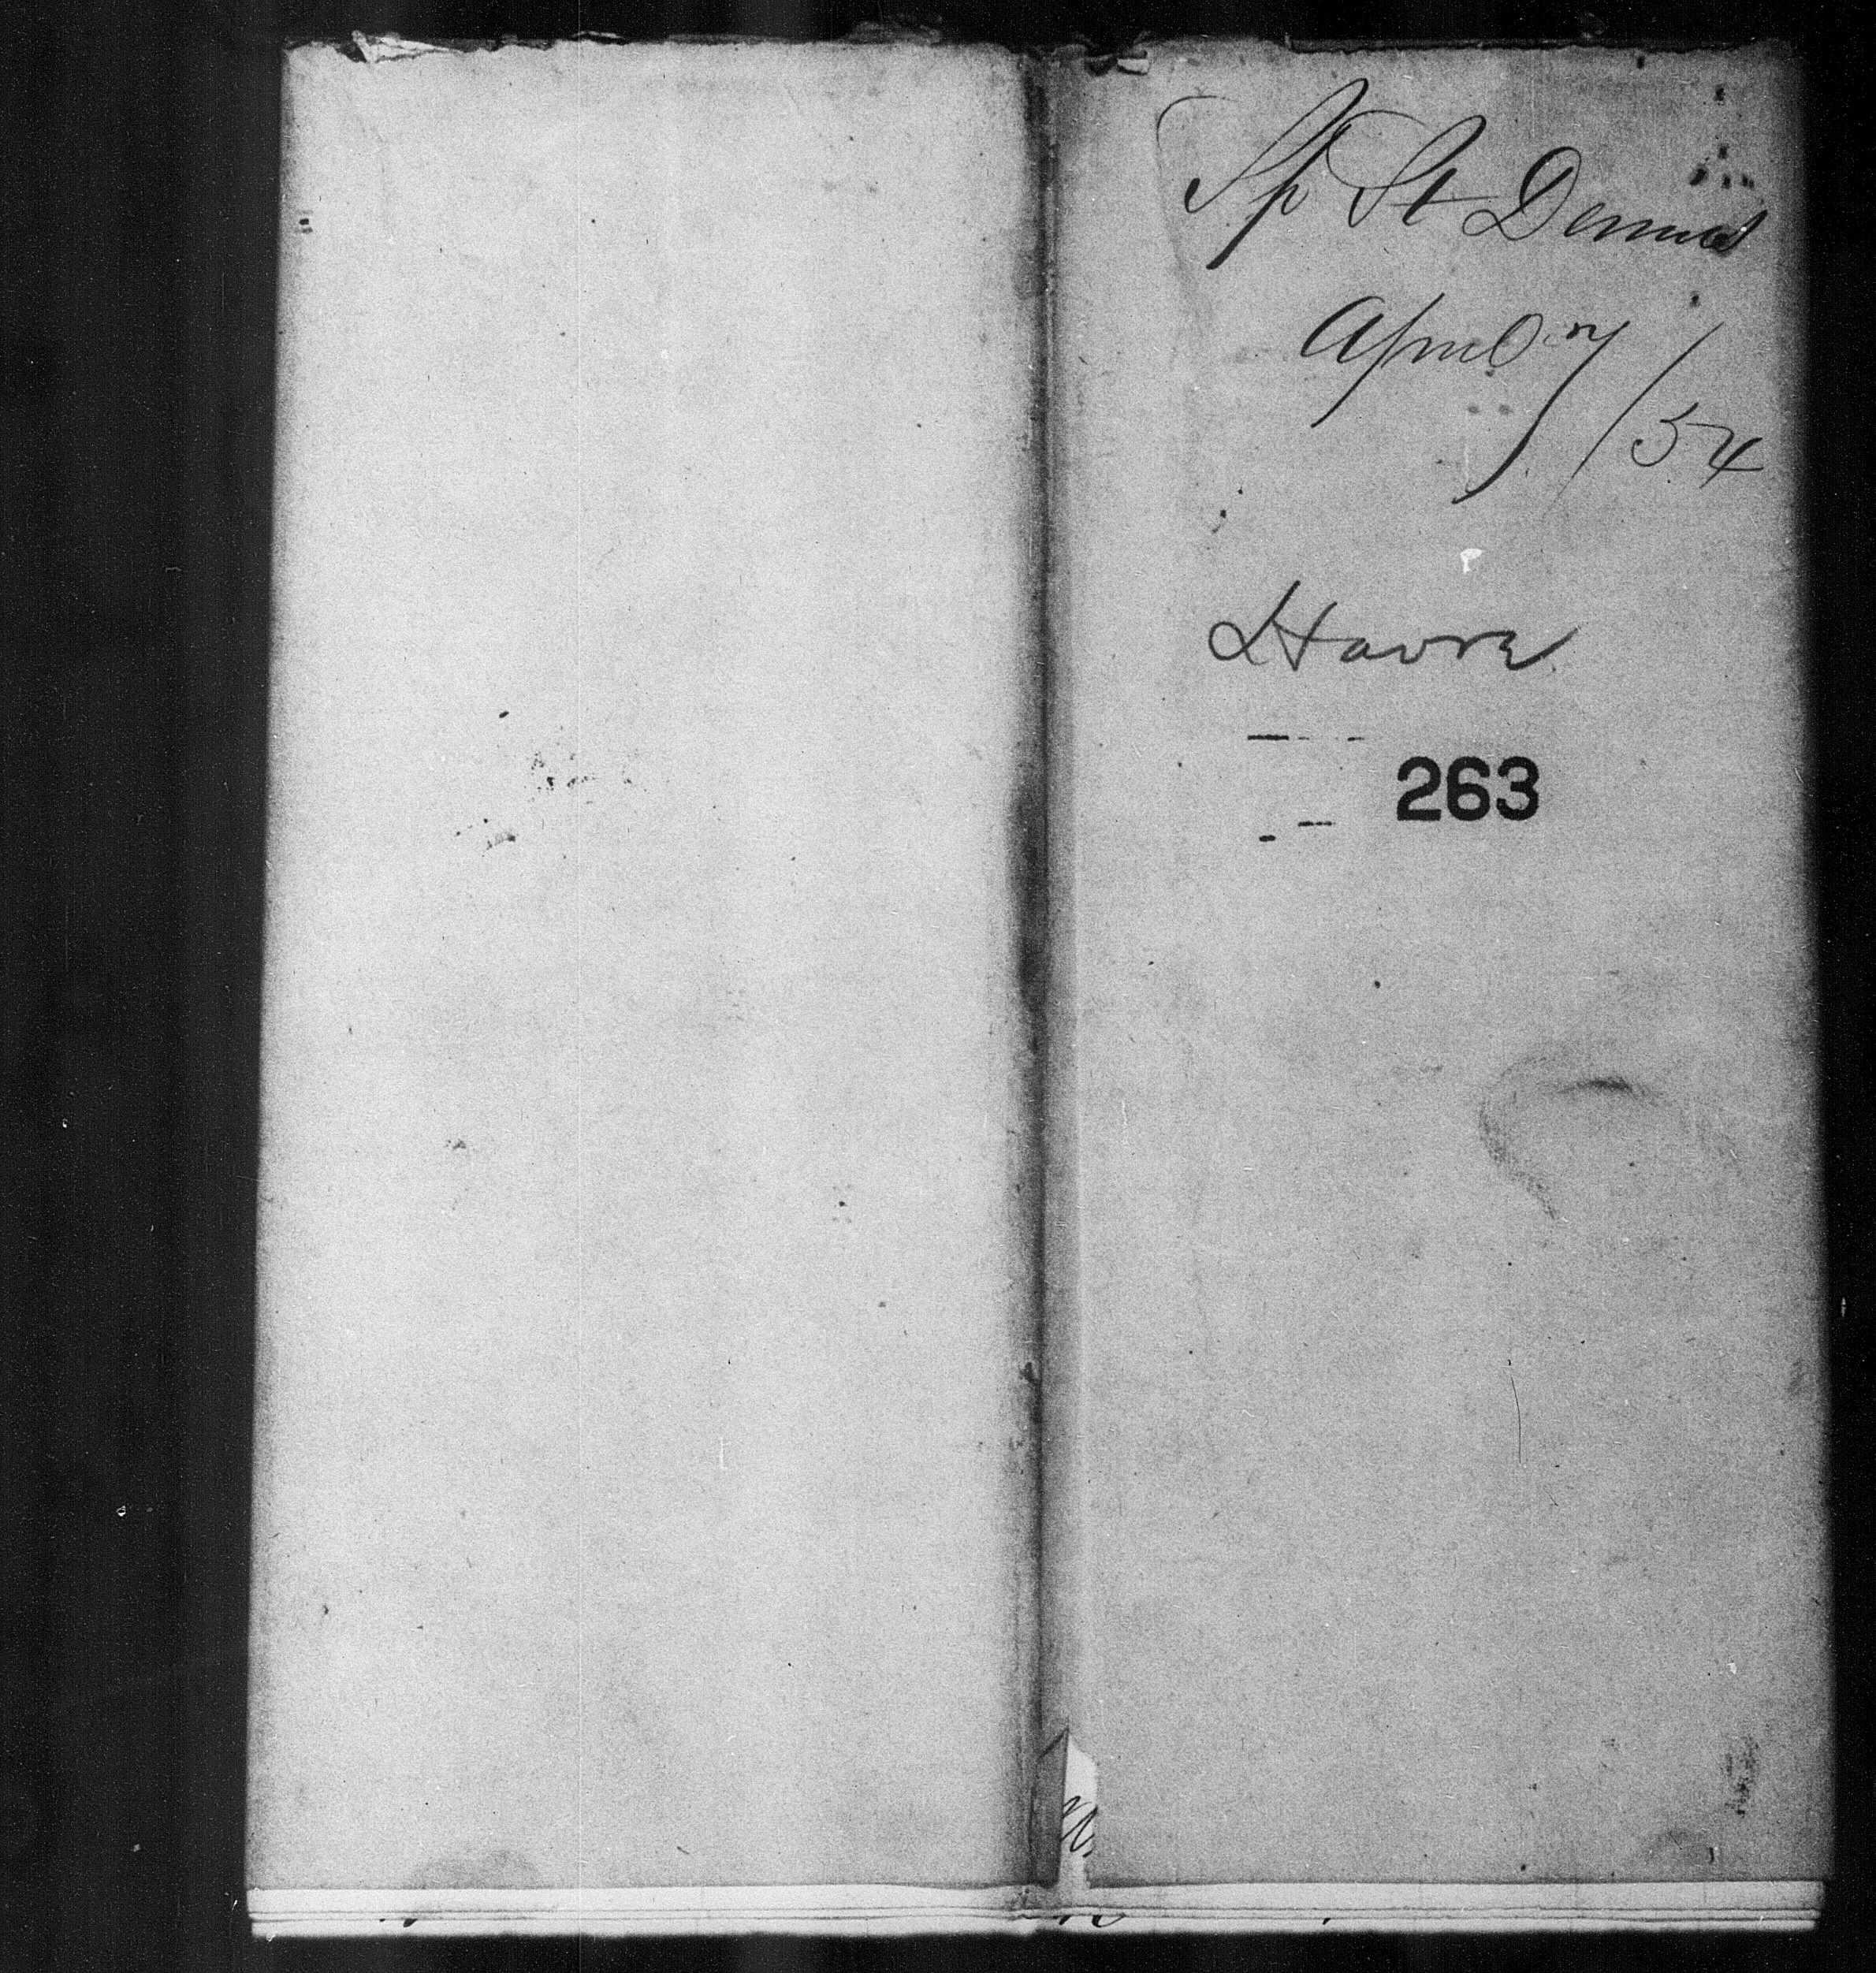 Sp St Dennis
April 7/54
Havre
263